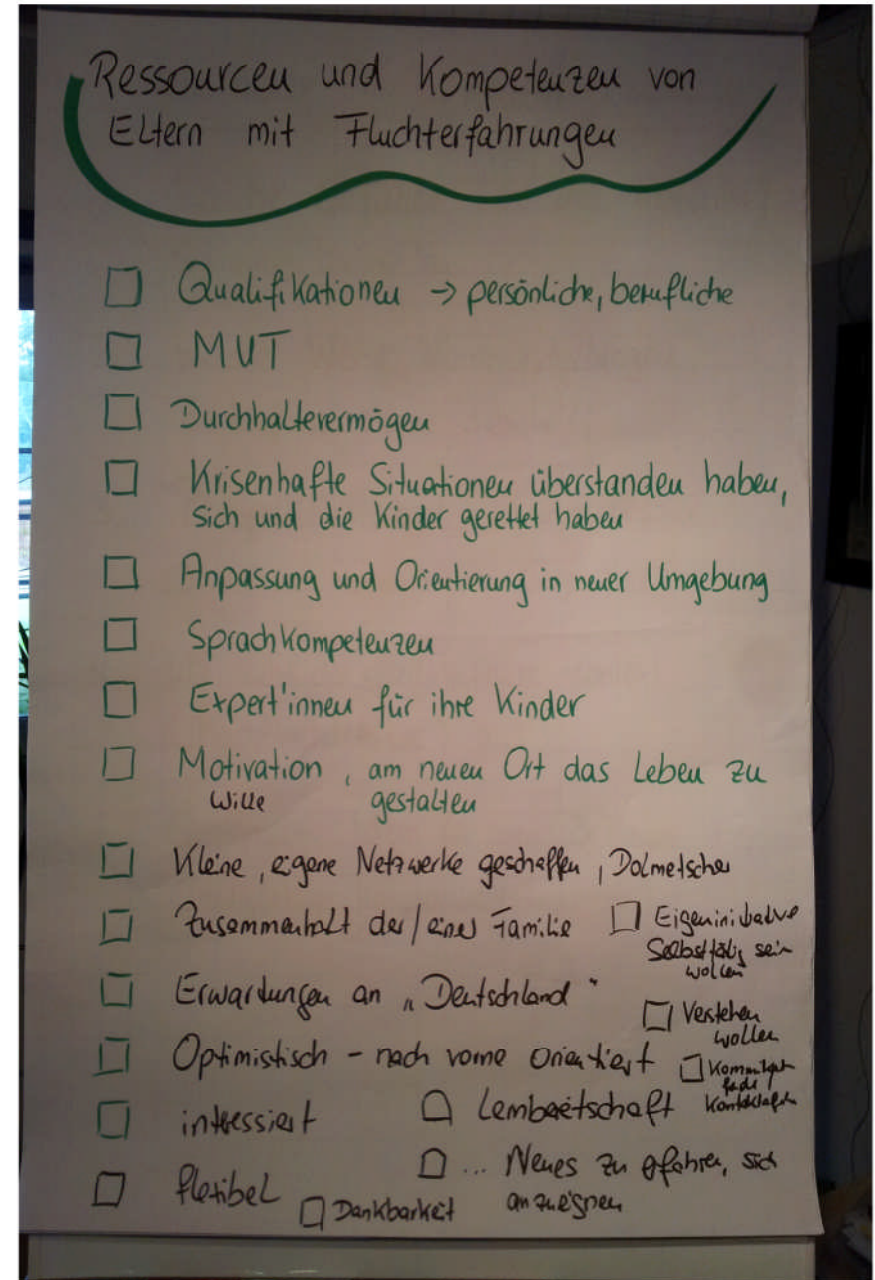 Ressourcen und Kompetenzen von
Eltern mit Fluchterfahrungen
☐ Qualifikationen → persönliche, berufliche
☐ MUT
☐ Durchhaltevermögen
☐ Krisenhafte Situationen überstanden haben,
sich und die Kinder gerettet haben
☐ Anpassung und Orientierung in neuer Umgebung
☐ Sprachkompetenzen
☐ Expert'innen für ihre Kinder
☐ Motivation, am neuen Ort das Leben zu
Wille gestalten
☐ Kleine, eigene Netzwerke geschaffen, Dolmetscher
☐ Zusammenhalt der/einer Familie
☐ Eigeninitiative
Selbsttätig sein
wollen
☐ Erwartungen an „Deutschland“
☐ Verstehen
wollen
☐ Optimistisch – nach vorne orientiert
☐
☐ interessiert
☐ Lernbereitschaft
☐ flexibel
☐ ... Neues zu erfahren, sich
anzueignen
☐ Dankbarkeit